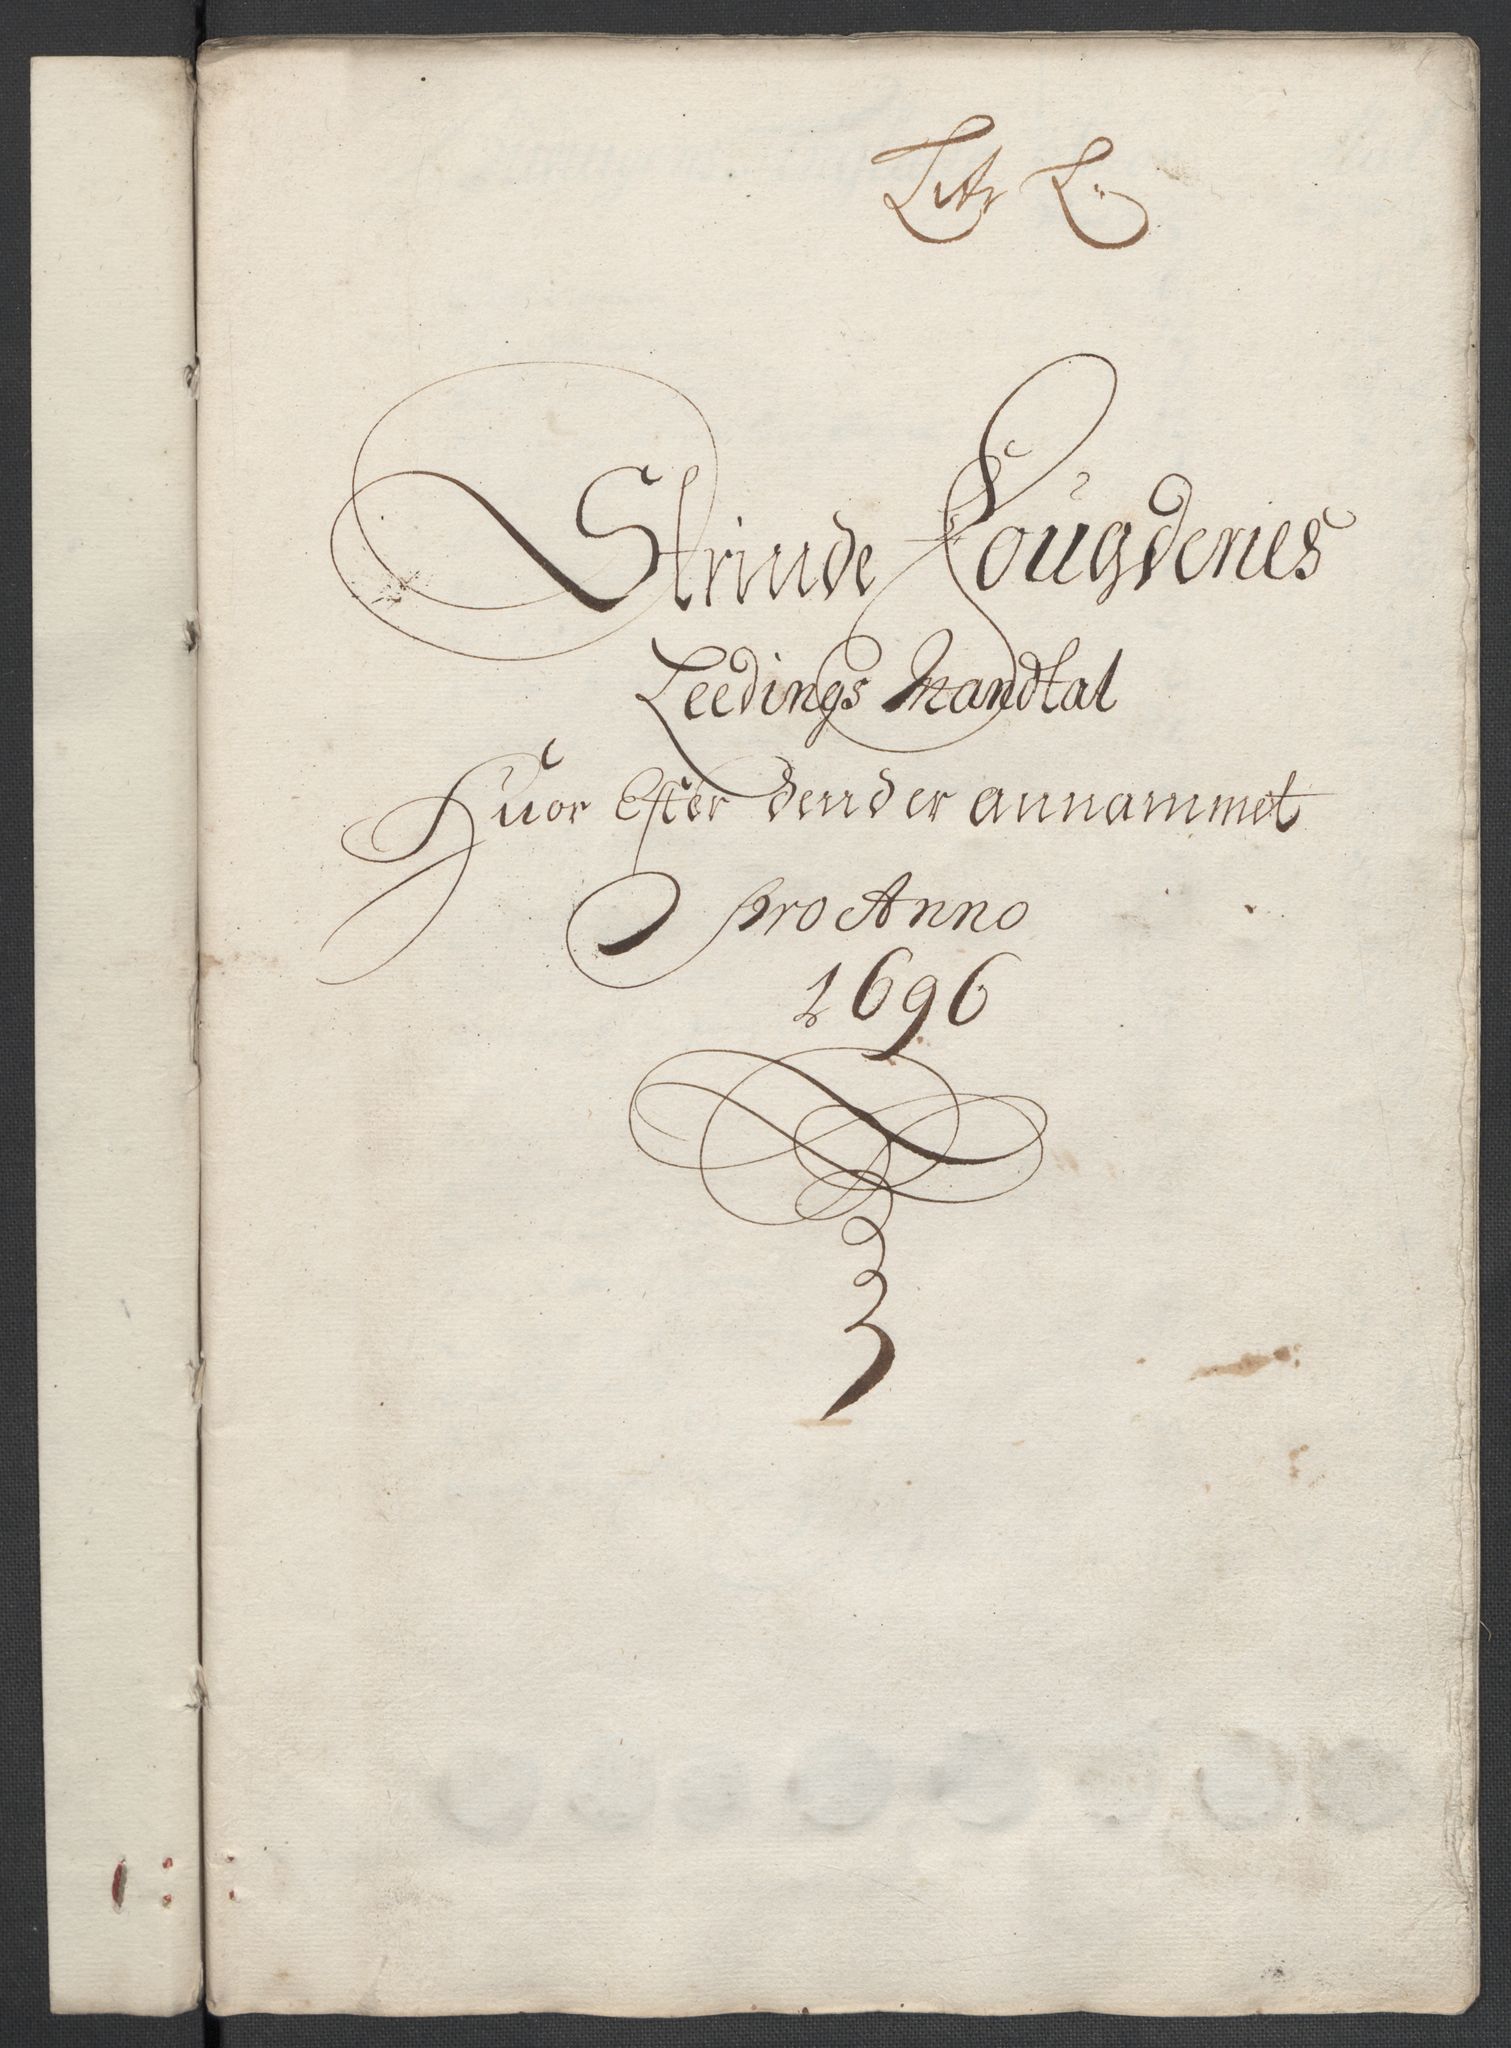 Litr L.
Strinde Fougderies
Leedings Mandtal
Huor Efter dend er annammet
pro Anno
1696